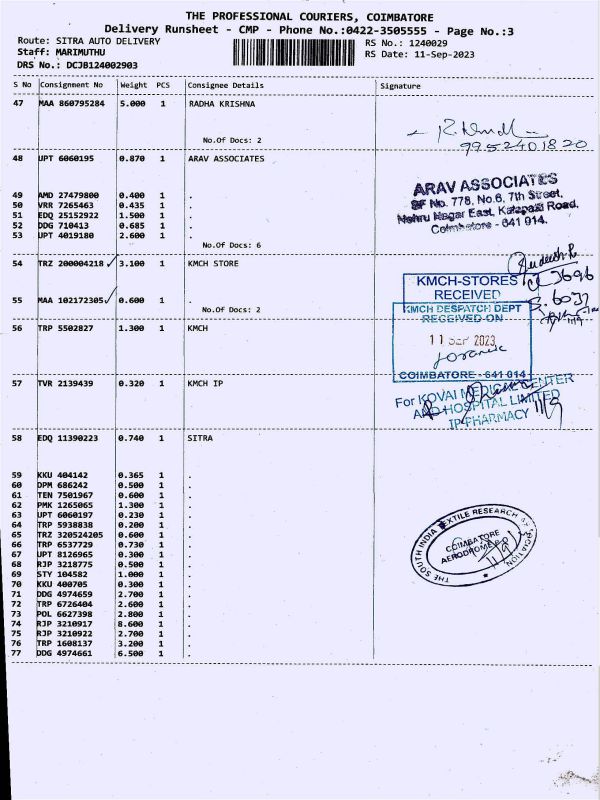 THE PROFESSIONAL COURIERS, COIMBATORE
Delivery Runsheet - CMP - Phone No.:0422-3505555 - Page No.:3
Route: SITRA AUTO DELIVERY RS No.: 1240029
Staff: MARIMUTHU RS Date: 11-Sep-2023
DRS No.: DCJB124002903
S No Consignment No Weight PCS Consignee Details Signature
47 MAA 860795284 5.000 1 RADHA KRISHNA
No.Of Docs: 2
9952401820
48 UPT 6060195 0.870 1 ARAV ASSOCIATES
ARAV ASSOCIATES
SF No. 778, No.6, 7th Street,
Nehru Nagar East, Kalapatti Road,
Coimbatore - 641 014.
49 AMD 27479800 0.400 1 .
50 VRR 7265463 0.435 1 .
51 EDQ 25152922 1.500 1 .
52 DDG 710413 0.685 1 .
53 UPT 4019180 2.600 1 .
No.Of Docs: 6
54 TRZ 200004218 3.100 1 KMCH STORE
KMCH-STORES
RECEIVED
55 MAA 102172305 0.600 1 .
No.Of Docs: 2
KMCH DESPATCH DEPT
RECEIVED ON
11 SEP 2023
COIMBATORE - 641 014
56 TRP 5502827 1.300 1 KMCH
57 TVR 2139439 0.320 1 KMCH IP
For KOVAI MEDICAL CENTER
AND HOSPITAL LIMITED
IP PHARMACY 11/9
58 EDQ 11390223 0.740 1 SITRA
59 KKU 404142 0.365 1 .
60 DPM 686242 0.500 1 .
61 TEN 7501967 0.600 1 .
62 PMK 1265065 1.300 1 .
63 UPT 6060197 0.230 1 .
64 TRP 5938838 0.200 1 .
65 TRZ 320524205 0.600 1 .
66 TRP 6537729 0.730 1 .
67 UPT 8126965 0.300 1 .
68 RJP 3218775 0.500 1 .
69 STY 104582 1.000 1 .
70 KKU 400705 0.300 1 .
71 DDG 4974659 2.700 1 .
72 TRP 6726404 2.600 1 .
73 POL 6627398 2.800 1 .
74 RJP 3210917 8.600 1 .
75 RJP 3210922 2.700 1 .
76 TRP 1608137 3.200 1 .
77 DDG 4974661 6.500 1 .
THE SOUTH INDIA TEXTILE RESEARCH ASSOCIATION
COIMBATORE
AERODROME P.O